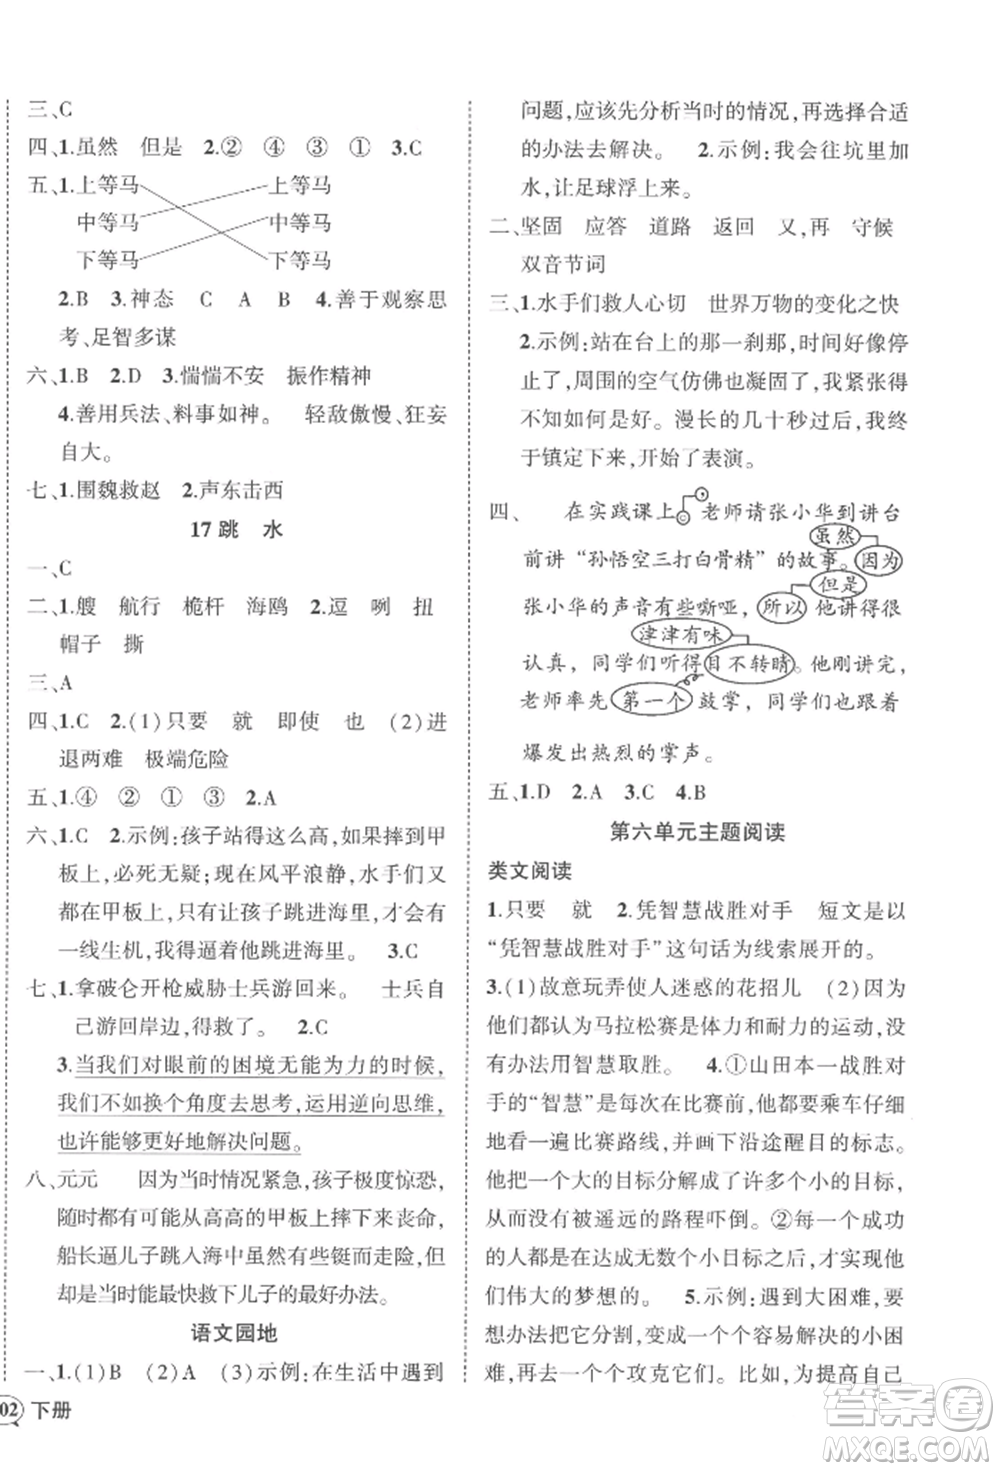 三、C
四、1.虽然　但是　2.②　④　③　①　3.C
五、1.上等马　上等马
中等马　中等马
下等马　下等马
2.B　3.神态　C　A　B　4.善于观察思
考、足智多谋
六、1.B　2.D　3.惴惴不安　振作精神
4.善用兵法、料事如神。　轻敌傲慢、狂妄
自大。
七、1.围魏救赵　2.声东击西
17 跳　水
一、C
二、1.艘　航行　桅杆　海鸥　2.逗　咧　扭
帽子　撕
三、A
四、1.C　2.(1)只要　就　即使　也　(2)进
退两难　极端危险
五、1.④　②　①　③　2.A
六、1.C　2.示例:孩子站得这么高,如果摔到甲
板上,必死无疑;现在风平浪静,水手们又
都在甲板上,只有让孩子跳进海里,才有
一线生机,我得逼着他跳进海里。　3.C
七、1.拿破仑开枪威胁士兵游回来。　士兵自
己游回岸边,得救了。　2.C
3.当我们对眼前的困境无能为力的时候,
我们不如换个角度去思考,运用逆向思维,
也许能够更好地解决问题。
八、元元　因为当时情况紧急,孩子极度惊恐,
随时都有可能从高高的甲板上摔下来丧命,
船长逼儿子跳入海中虽然有些铤而走险,
却是当时最快救下儿子的最好办法。
语文园地
一、1.(1)B　(2)A　(3)示例:在生活中遇到
02 下册
问题,应该先分析当时的情况,再选择合适
的办法去解决。　2.示例:我会往坑里加
水,让足球浮上来。
二、坚固　应答　道路　返回　又,再　守候
双音节词
三、1.水手们救人心切　世界万物的变化之快
2.示例:站在台上的那一刹那,时间好像停
止了,周围的空气仿佛也凝固了,我紧张得
不知如何是好。漫长的几十秒过后,我终
于镇定下来,开始了表演。
四、　在实践课上,老师请张小华到讲台
前讲“孙悟空三打白骨精”的故事。虽然 因为
张小华的声音有些嘶哑,但是 所以 他讲得很
认真,同学们听得津津有味 目不转睛。他刚讲完,
老师率先第一个鼓掌,其他同学们也跟着
爆发出热烈的掌声。
五、1.D　2.A　3.C　4.B
第六单元主题阅读
类文阅读
1.只要　就　2.凭智慧战胜对手　短文是以
“凭智慧战胜对手”这句话为线索展开的。
3.(1)故意玩弄使人迷惑的花招儿　(2)因为
他们都认为马拉松赛是体力和耐力的运动,没
有办法用智慧取胜。　4.①山田本一战胜对
手的“智慧”是每次在比赛前,他都要乘车仔细
地看一遍比赛路线,并画下沿途醒目的标志。
他把一个大的目标分成了许多个小的目标,
没有被遥远的路程吓倒。②每一个成功
的人都是在达成无数个小目标之后,才实现他
们伟大的梦想的。　5.示例:遇到大困难,要
想办法把它分割,变成一个个容易解决的小困
难,再去一个个攻克它们。比如,为提高自己
答案圈
MXQE.COM